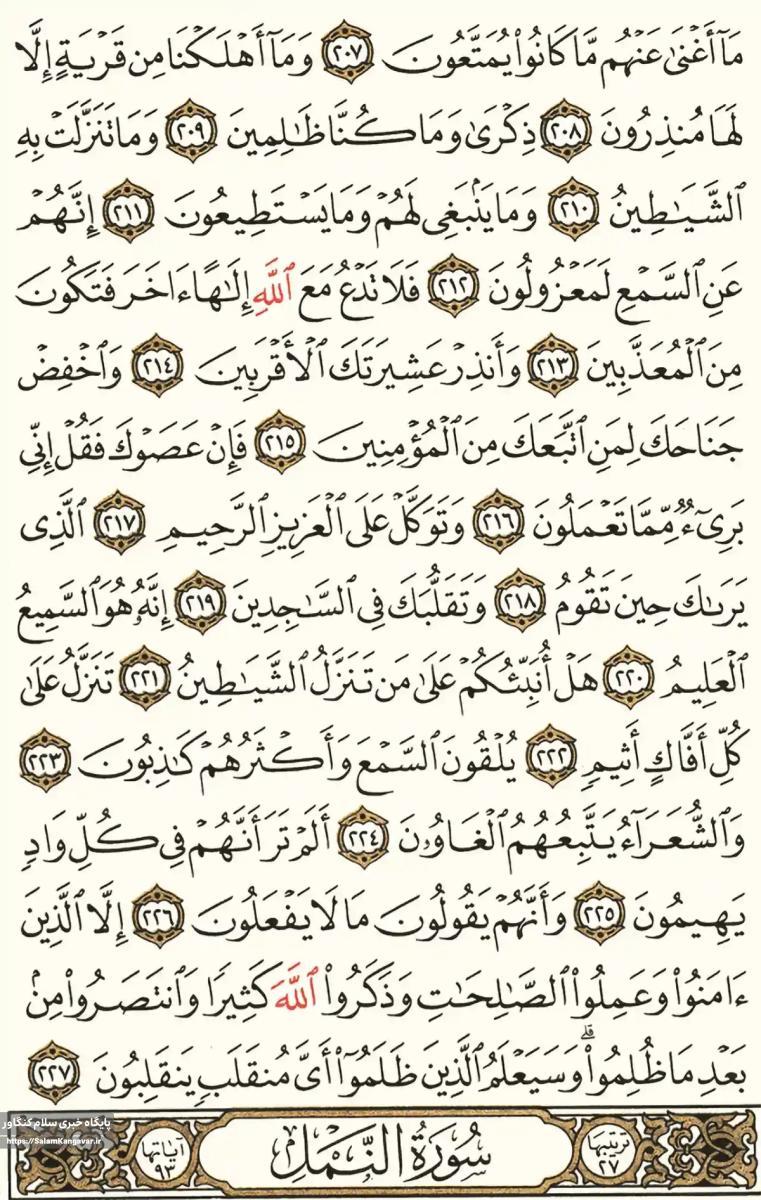 مَآ أَغْنَىٰ عَنْهُم مَّا كَانُوا۟ يُمَتَّعُونَ ٢٠٧ وَمَآ أَهْلَكْنَا مِن قَرْيَةٍ إِلَّا
لَهَا مُنذِرُونَ ٢٠٨ ذِكْرَىٰ وَمَا كُنَّا ظَـٰلِمِينَ ٢٠٩ وَمَا تَنَزَّلَتْ بِهِ
ٱلشَّيَـٰطِينُ ٢١٠ وَمَا يَنۢبَغِى لَهُمْ وَمَا يَسْتَطِيعُونَ ٢١١ إِنَّهُمْ
عَنِ ٱلسَّمْعِ لَمَعْزُولُونَ ٢١٢ فَلَا تَدْعُ مَعَ ٱللَّهِ إِلَـٰهًا ءَاخَرَ فَتَكُونَ
مِنَ ٱلْمُعَذَّبِينَ ٢١٣ وَأَنذِرْ عَشِيرَتَكَ ٱلْأَقْرَبِينَ ٢١٤ وَٱخْفِضْ
جَنَاحَكَ لِمَنِ ٱتَّبَعَكَ مِنَ ٱلْمُؤْمِنِينَ ٢١٥ فَإِنْ عَصَوْكَ فَقُلْ إِنِّى
بَرِىٓءٌ مِّمَّا تَعْمَلُونَ ٢١٦ وَتَوَكَّلْ عَلَى ٱلْعَزِيزِ ٱلرَّحِيمِ ٢١٧ ٱلَّذِى
يَرَىٰكَ حِينَ تَقُومُ ٢١٨ وَتَقَلُّبَكَ فِى ٱلسَّـٰجِدِينَ ٢١٩ إِنَّهُۥ هُوَ ٱلسَّمِيعُ
ٱلْعَلِيمُ ٢٢٠ هَلْ أُنَبِّئُكُمْ عَلَىٰ مَن تَنَزَّلُ ٱلشَّيَـٰطِينُ ٢٢١ تَنَزَّلُ عَلَىٰ
كُلِّ أَفَّاكٍ أَثِيمٍ ٢٢٢ يُلْقُونَ ٱلسَّمْعَ وَأَكْثَرُهُمْ كَـٰذِبُونَ ٢٢٣
وَٱلشُّعَرَآءُ يَتَّبِعُهُمُ ٱلْغَاوُۥنَ ٢٢٤ أَلَمْ تَرَ أَنَّهُمْ فِى كُلِّ وَادٍ
يَهِيمُونَ ٢٢٥ وَأَنَّهُمْ يَقُولُونَ مَا لَا يَفْعَلُونَ ٢٢٦ إِلَّا ٱلَّذِينَ
ءَامَنُوا۟ وَعَمِلُوا۟ ٱلصَّـٰلِحَـٰتِ وَذَكَرُوا۟ ٱللَّهَ كَثِيرًا وَٱنتَصَرُوا۟ مِنۢ
بَعْدِ مَا ظُلِمُوا۟ ۗ وَسَيَعْلَمُ ٱلَّذِينَ ظَلَمُوٓا۟ أَىَّ مُنقَلَبٍ يَنقَلِبُونَ ٢٢٧
ترتيبها ٢٧ سُورَةُ النَّمْلِ آياتها ٩٣
پایگاه خبری سلام کنگاور
https://SalamKangavar.ir